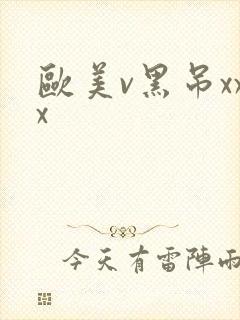 歐美v黑吊xx
x
今天有雷陣雨